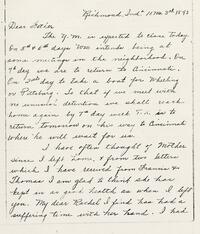 Richmond, Ind. 11 Mo. 3rd 1843
Dear Sister
The Y.M. is expected to close today.
On 5th & 6th days Wm intends being at
some meetings in the neighborhood. On
7th day we are to return to Cincinnati.
On 2nd day to take a boat for Wheeling
or Pittsburg. So that if we meet with
no unusual detention we shall reach
home again by 7th day week. T. is to
return tomorrow on his way to Cincinnati
where he will wait for us.
I have often thought of Mother
since I left home, & from two letters
which I have received from Frannie &
Thomas I am glad to find she has
kept in as good health as when I left
you. My dear Rachel I find has had a
suffering time with her hand. I had